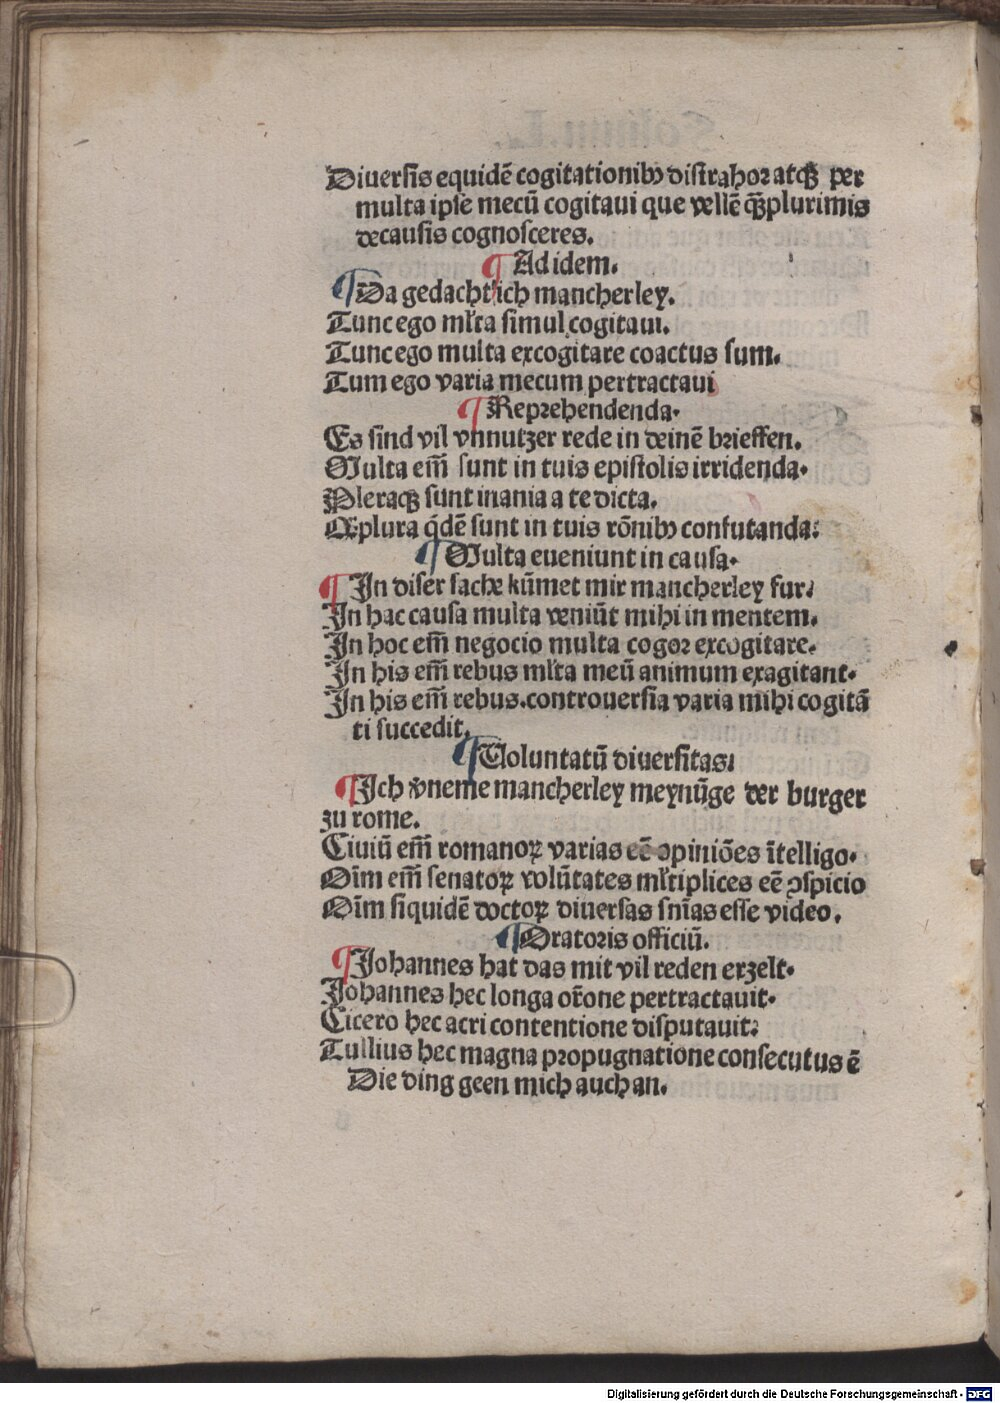 Diuersis equidē cogitationibꝰ distrahor atqꝫ per
multa ipse mecū cogitaui que vellē qꝫplurimis
de causis cognosceres.
¶ Ad idem.
¶ Da gedacht ich mancherley.
Tunc ego ml̃ta simul cogitaui.
Tunc ego multa excogitare coactus sum.
Tum ego varia mecum pertractaui
¶ Reprehendenda.
Es sind vil vnnutzer rede in deinē brieffen.
Multa em̃ sunt in tuis epistolis irridenda.
Pleraqꝫ sunt inania a te dicta.
Qꝫplura q̇dē sunt in tuis rōnibꝰ confutanda:
¶ Multa eueniunt in causa.
¶ In diser sache kūmet mir mancherley fur:
In hac causa multa veniūt mihi in mentem.
In hoc em̃ negocio multa cogor excogitare.
In his em̃ rebus ml̃ta meū animum exagitant.
In his em̃ rebus.controuersia varia mihi cogitā
ti succedit.
¶ Voluntatū diuersitas:
¶ Ich v̾neme mancherley meynūge der burger
zu rome.
Ciuiū em̃ romanoꝝ varias eē opiniōes ītelligo.
Oīm em̃ senatoꝝ volūtates ml̃tiplices eē ꝯspicio
Oīm siquidē doctoꝝ diuersas snīas esse video.
¶ Oratoris officiū.
¶ Johannes hat das mit vil reden erzelt.
Johannes hec longa or̄one pertractauit.
Cicero hec acri contentione disputauit:
Tullius hec magna propugnatione consecutus ē
Die ding geen mich auch an.
Digitalisierung gefördert durch die Deutsche Forschungsgemeinschaft - DFG